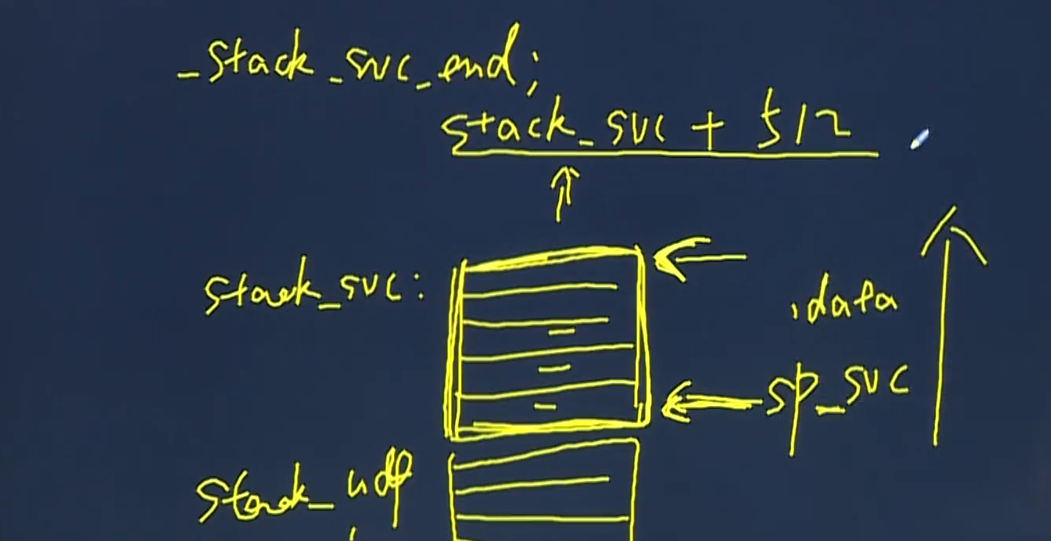 _stack_svc_end;
stack_svc + 512
stack_svc:
.data
sp_svc
stack_udf